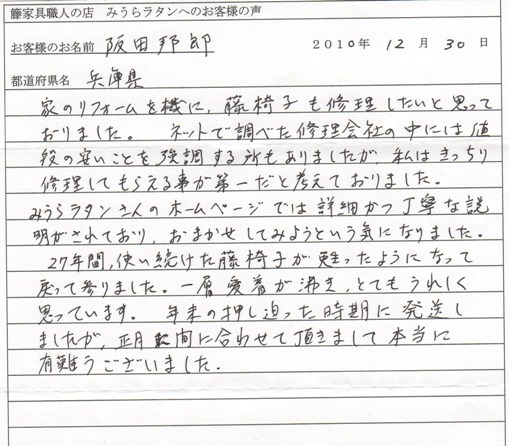 籐家具職人の店　みうらラタンへのお客様の声
お客様のお名前　阪田邦郎　2010年 12月 30日
都道府県名　兵庫県
家のリフォームを機に、藤椅子も修理したいと思って
おりました。　ネットで調べた修理会社の中には値
段の安いことを強調する所もありましたが、私はきっちり
修理してもらえる事が第一だと考えておりました。
みうらラタンさんのホームページでは詳細かつ丁寧な説
明がされており、おまかせしてみようという気になりました。
27年間、使い続けた藤椅子が甦ったようになって
戻って参りました。一層愛着が沸き、とてもうれしく
思っています。　年末の押し迫った時期に発送し
ましたが、正月に間に合わせて頂きまして本当に
有難うございました。